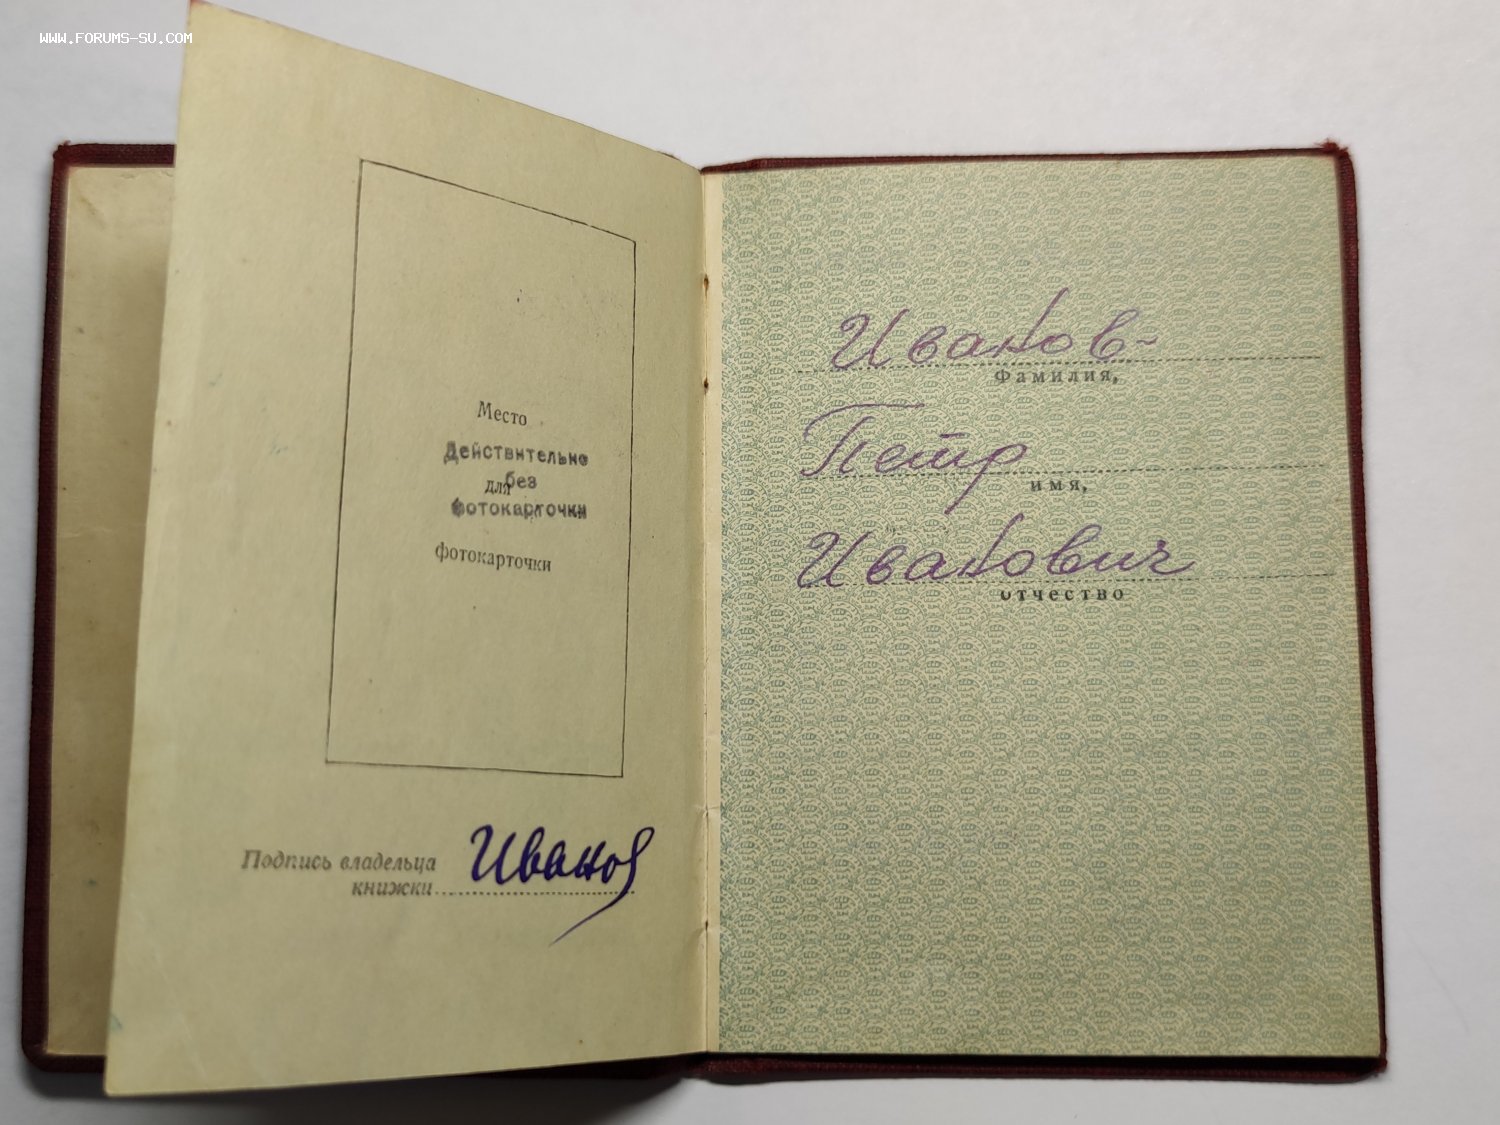 WWW.FORUMS-SU.COM
Место
Действительно
без
для
фотокарточки
фотокарточки
Подпись владельца
книжки
Иванов
Иванов
Фамилия,
Петр
имя,
Иванович
отчество